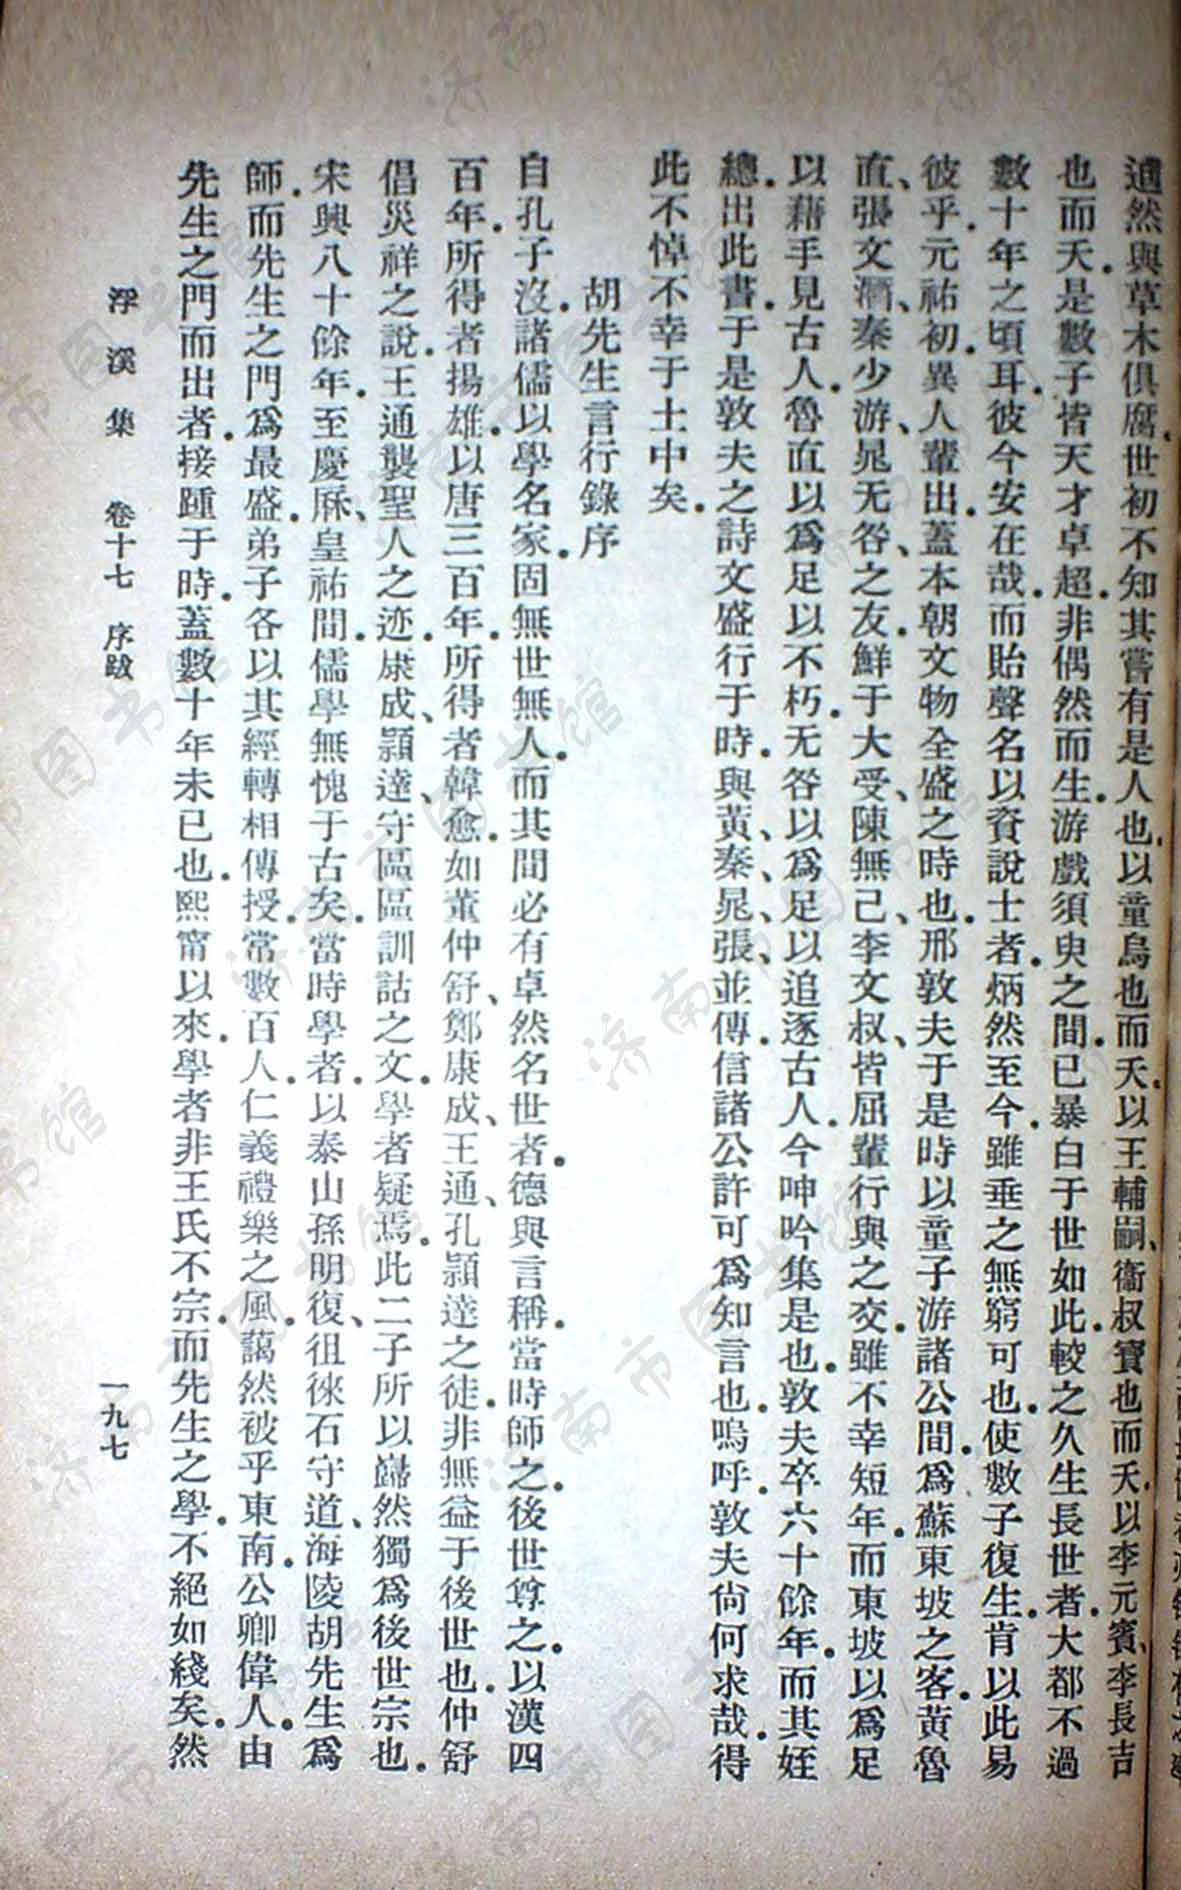 遒然與草木俱腐世初不知其嘗有是人也以童烏也而夭以王輔嗣、衞叔寶也而夭以李元賓、李長吉
也而夭是數子皆天才卓超非偶然而生游戲須臾之間已暴白于世如此較之久生長世者大都不過
數十年之頃耳彼今安在哉而貽聲名以資說士者炳然至今雖垂之無窮可也使數子復生肯以此易
彼乎元祐初異人輩出蓋本朝文物全盛之時也邢敦夫于是時以童子游諸公間爲蘇東坡之客黃魯
直、張文潛、秦少游、晁无咎之友鮮于大受、陳無己、李文叔、皆屈輩行與之交雖不幸短年而東坡以爲足
以藉手見古人魯直以爲足以不朽无咎以爲足以追逐古人今呻吟集是也敦夫卒六十餘年而其姪
總出此書于是敦夫之詩文盛行于時與黃、秦、晁、張、並傳信諸公許可爲知言也嗚呼敦夫尙何求哉得
此不悼不幸于土中矣
胡先生言行錄序
自孔子沒諸儒以學名家固無世無人而其間必有卓然名世者德與言稱當時師之後世尊之以漢四
百年所得者揚雄以唐三百年所得者韓愈如董仲舒、鄭康成、王通、孔穎達之徒非無益于後世也仲舒
倡災祥之說王通襲聖人之迹康成、穎達、守區區訓詁之文學者疑焉此二子所以巋然獨爲後世宗也
宋興八十餘年至慶厤、皇祐間儒學無愧于古矣當時學者以泰山孫明復、徂徠石守道、海陵胡先生爲
師而先生之門爲最盛弟子各以其經轉相傳授常數百人仁義禮樂之風藹然被乎東南公卿偉人由
先生之門而出者接踵于時蓋數十年未已也熙甯以來學者非王氏不宗而先生之學不絕如綫矣然
浮溪集 卷十七 序跋 一九七